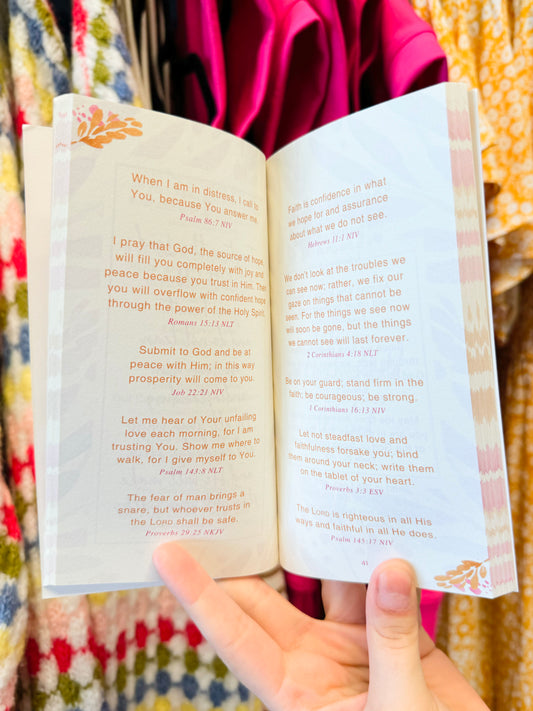 When I am in distress, I call to
You, because You answer me.
Psalm 86:7 NIV
I pray that God, the source of hope,
will fill you completely with joy and
peace because you trust in Him. Then
you will overflow with confident hope
through the power of the Holy Spirit.
Romans 15:13 NLT
Submit to God and be at
peace with Him; in this way
prosperity will come to you.
Job 22:21 NIV
Let me hear of Your unfailing
love each morning, for I am
trusting You. Show me where to
walk, for I give myself to You.
Psalm 143:8 NLT
The fear of man brings a
snare, but whoever trusts in
the LORD shall be safe.
Proverbs 29:25 NKJV
Faith is confidence in what
we hope for and assurance
about what we do not see.
Hebrews 11:1 NIV
We don't look at the troubles we
can see now; rather, we fix our
gaze on things that cannot be
seen. For the things we see now
will soon be gone, but the things
we cannot see will last forever.
2 Corinthians 4:18 NLT
Be on your guard; stand firm in the
faith; be courageous; be strong.
1 Corinthians 16:13 NIV
Let not steadfast love and
faithfulness forsake you; bind
them around your neck; write them
on the tablet of your heart.
Proverbs 3:3 ESV
The LORD is righteous in all His
ways and faithful in all He does.
Psalm 145:17 NIV